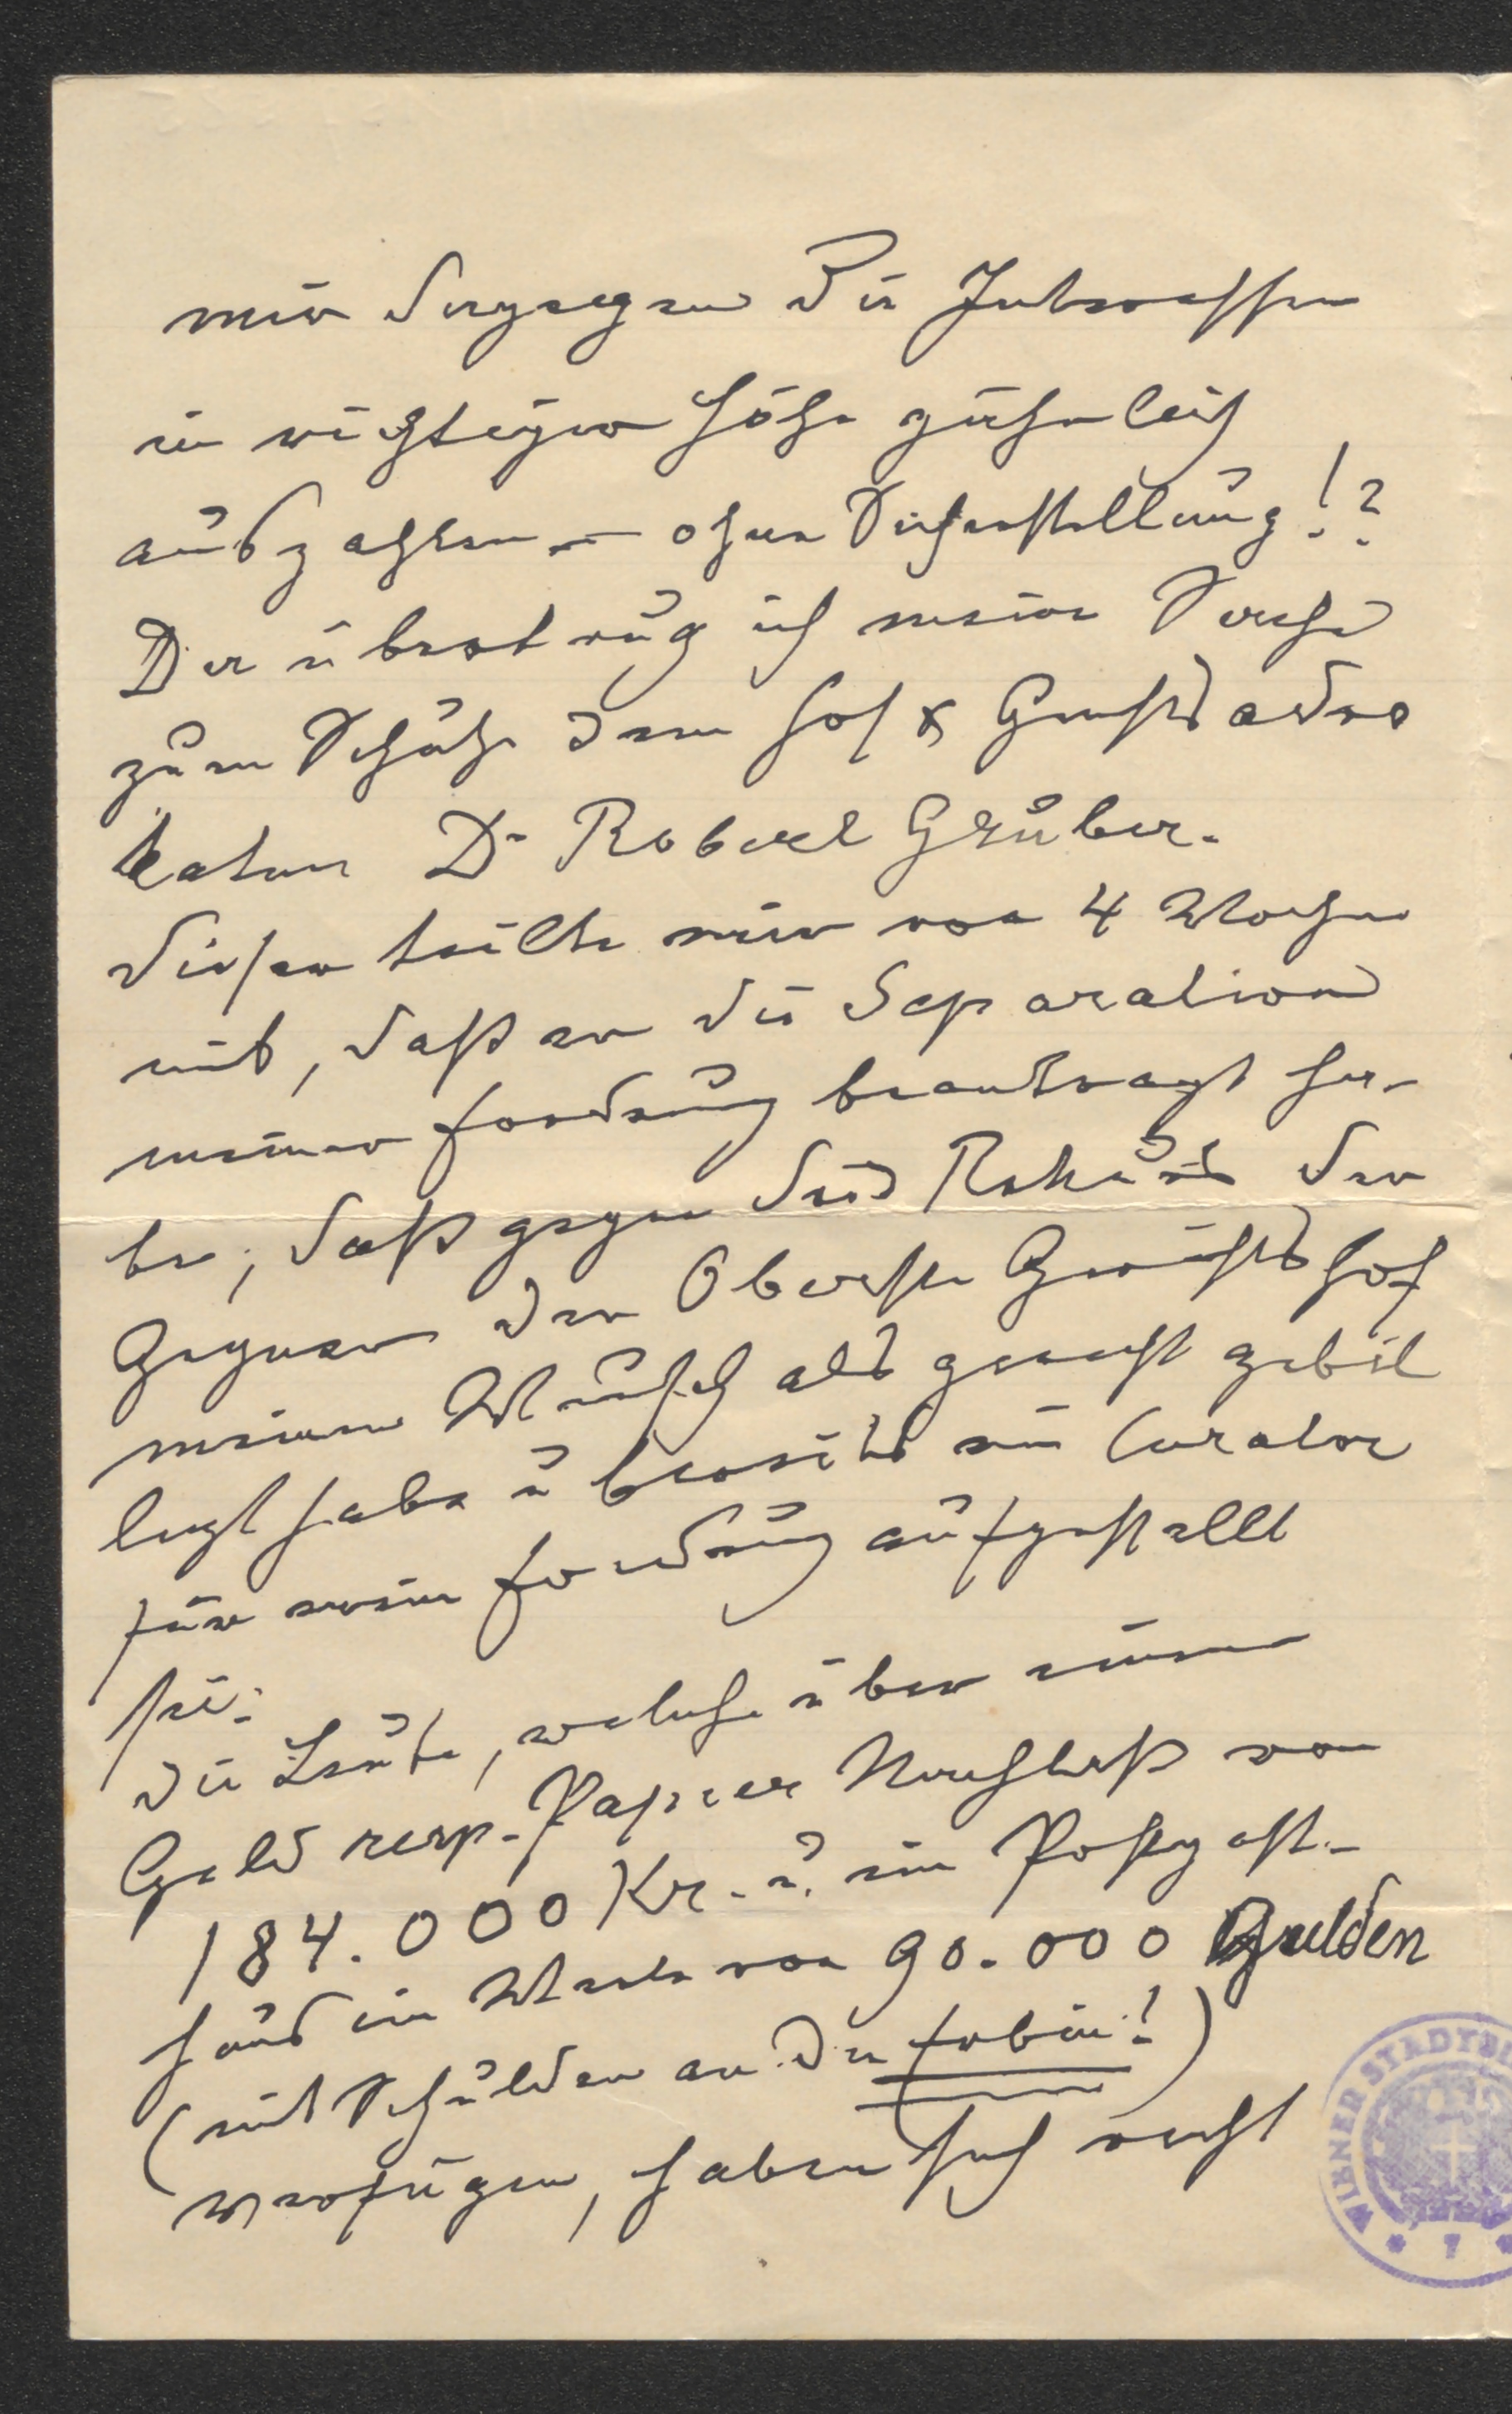 mir dagegen die Interessen
in richtiger Höhe jährlich
auszahlen — ohne Sicherstellung!?
Da übertrug ich meine Sache
zum Schutze dem Hof & Gerichtsadvo
katen Dr Robert Gruber.
Dieser teilte mir vor 4 Wochen
mit, daß er die Separation
meiner Forderung beantragt ha-
be; daß gegen den Rekurs der
Gegner der Oberste Gerichtshof
meinen Wunsch als gerecht gebil
ligt habe u bereits ein Curator
für meine Forderung aufgestellt
sei.
Die Leute, welche über einen
Geld resp. Papier Nachlaß von
184.000 Kr. u. ein
haus im Werte von 90.000 Gulden
(mit Schulden an der
verfügen, haben sich nicht
WIENER STADTBI